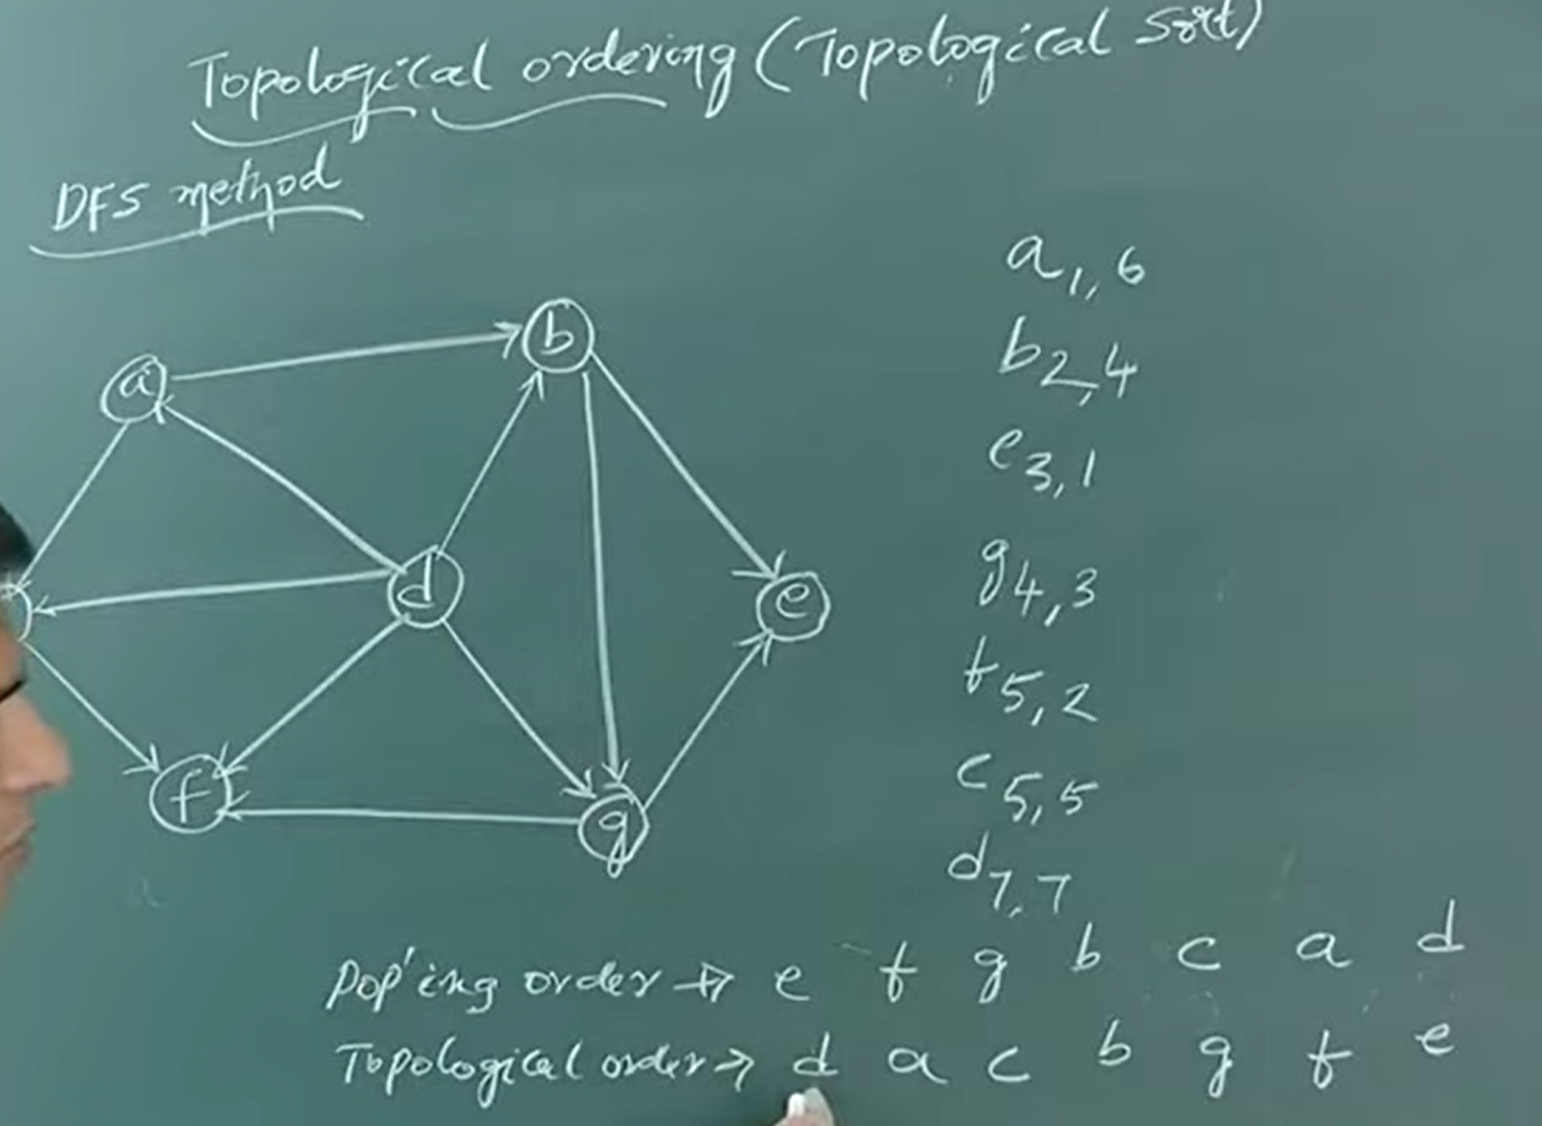 Topological ordering (Topological Sort)
DFS method
a1,6
b
b2,4
a
e3,1
g4,3
d
e
t5,2
c5,5
f
g
d7,7
Pop'ing order → e t g b c a d
Topological order → d a c b g t e